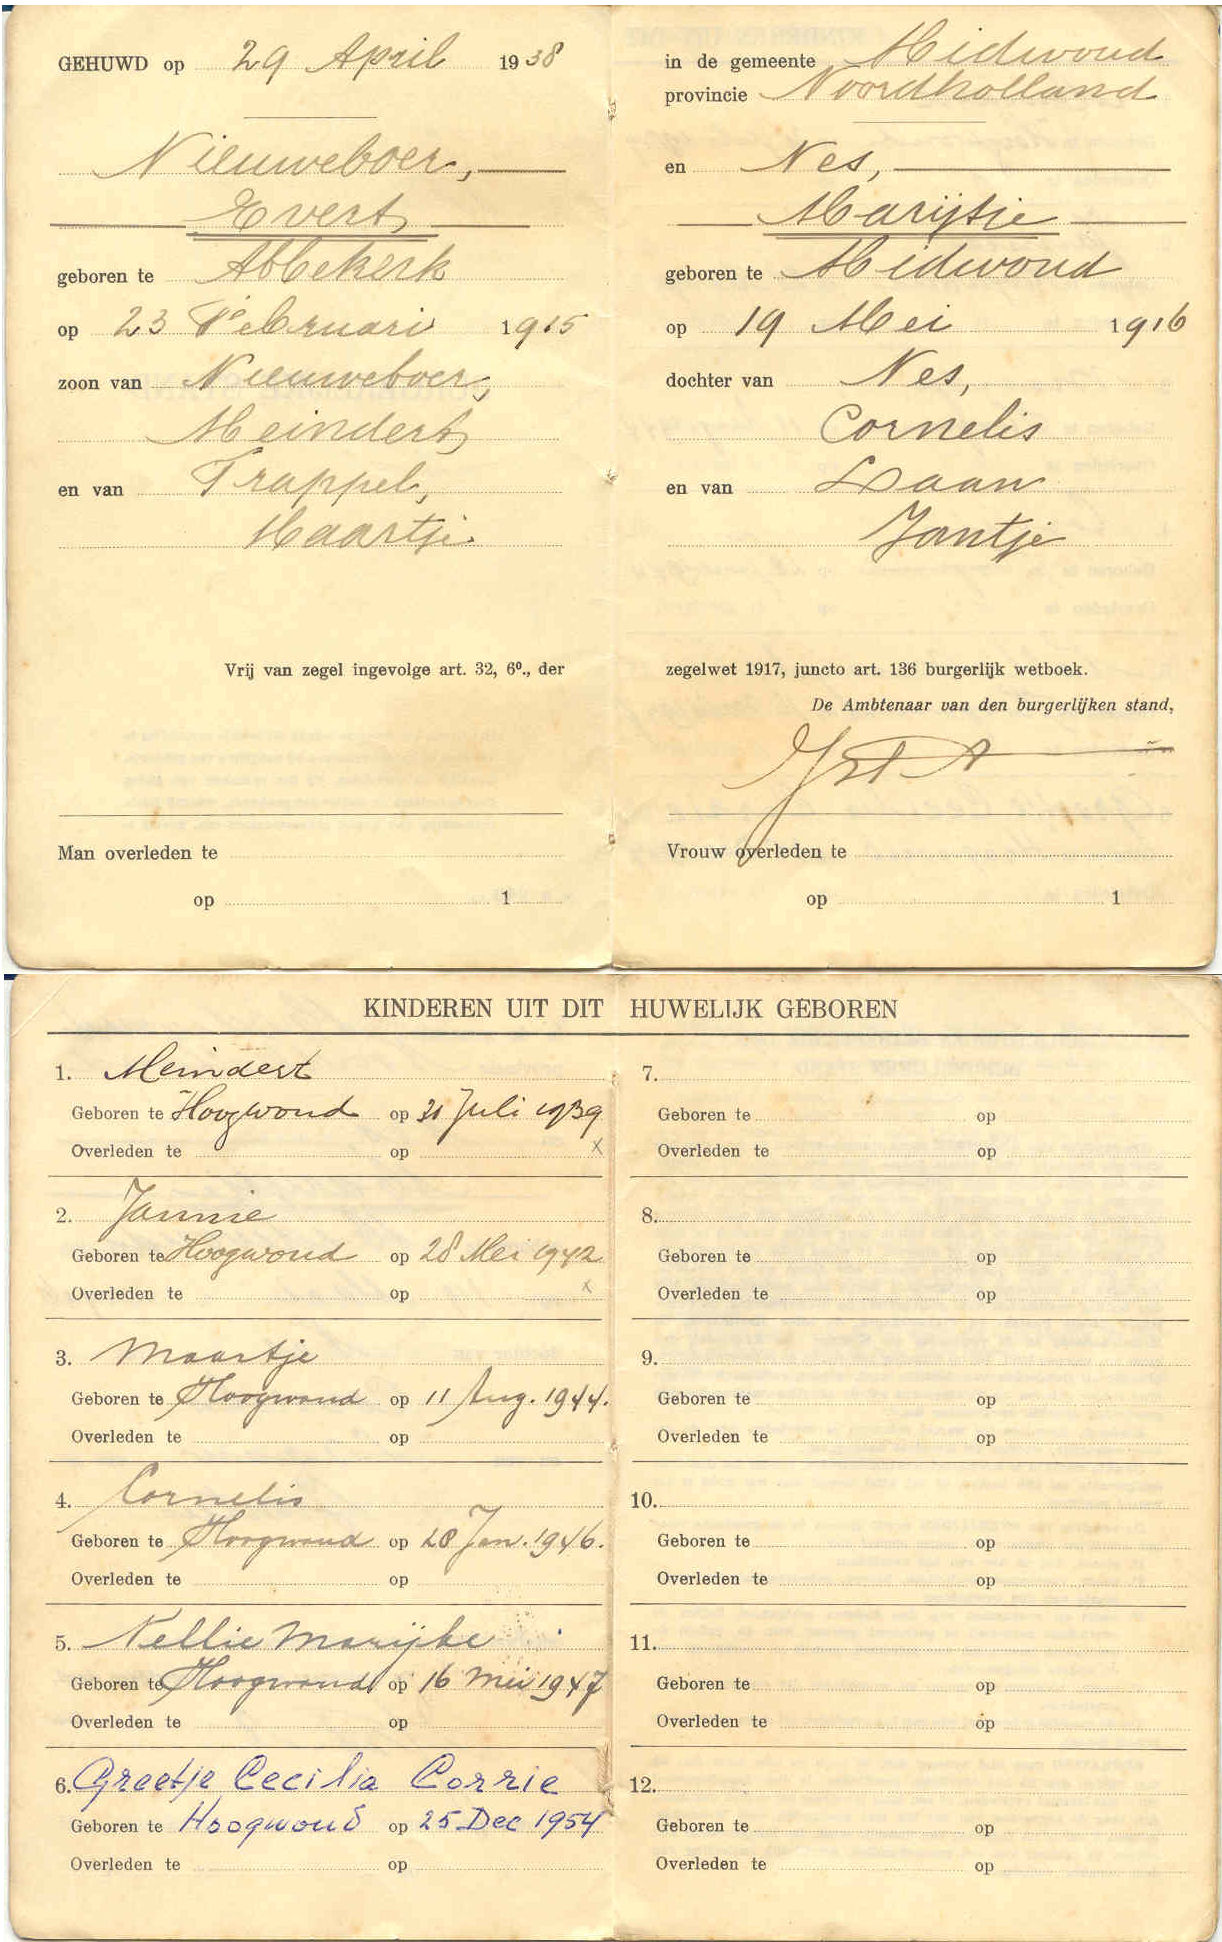 GEHUWD op 29 April 1938
Nieuweboer,
Evert,
geboren te Abbekerk
op 23 Februari 1915
zoon van Nieuweboer,
Meindert,
en van Trappel,
Maartje
Vrij van zegel ingevolge art. 32, 6º., der
Man overleden te
op 1
in de gemeente Midwoud
provincie Noordholland
en Nes,
Marijtje
geboren te Midwoud
op 19 Mei 1916
dochter van Nes,
Cornelis
en van Laan
Jantje
zegelwet 1917, juncto art. 136 burgerlijk wetboek.
De Ambtenaar van den burgerlijken stand,
Vrouw overleden te
op 1
KINDEREN UIT DIT HUWELIJK GEBOREN
1. Meindert
Geboren te Hoogwoud op 31 Juli 1939
Overleden te op x
2. Jannie
Geboren te Hoogwoud op 28 Mei 1942
Overleden te op x
3. Maartje
Geboren te Hoogwoud op 11 Aug. 1944.
Overleden te op
4. Cornelis
Geboren te Hoogwoud op 28 Jan. 1946.
Overleden te op
5. Nellie Marijke
Geboren te Hoogwoud op 16 Mei 1947
Overleden te op
6. Greetje Cecilia Corrie
Geboren te Hoogwoud op 25 Dec 1954
Overleden te op
7.
Geboren te op
Overleden te op
8.
Geboren te op
Overleden te op
9.
Geboren te op
Overleden te op
10.
Geboren te op
Overleden te op
11.
Geboren te op
Overleden te op
12.
Geboren te op
Overleden te op